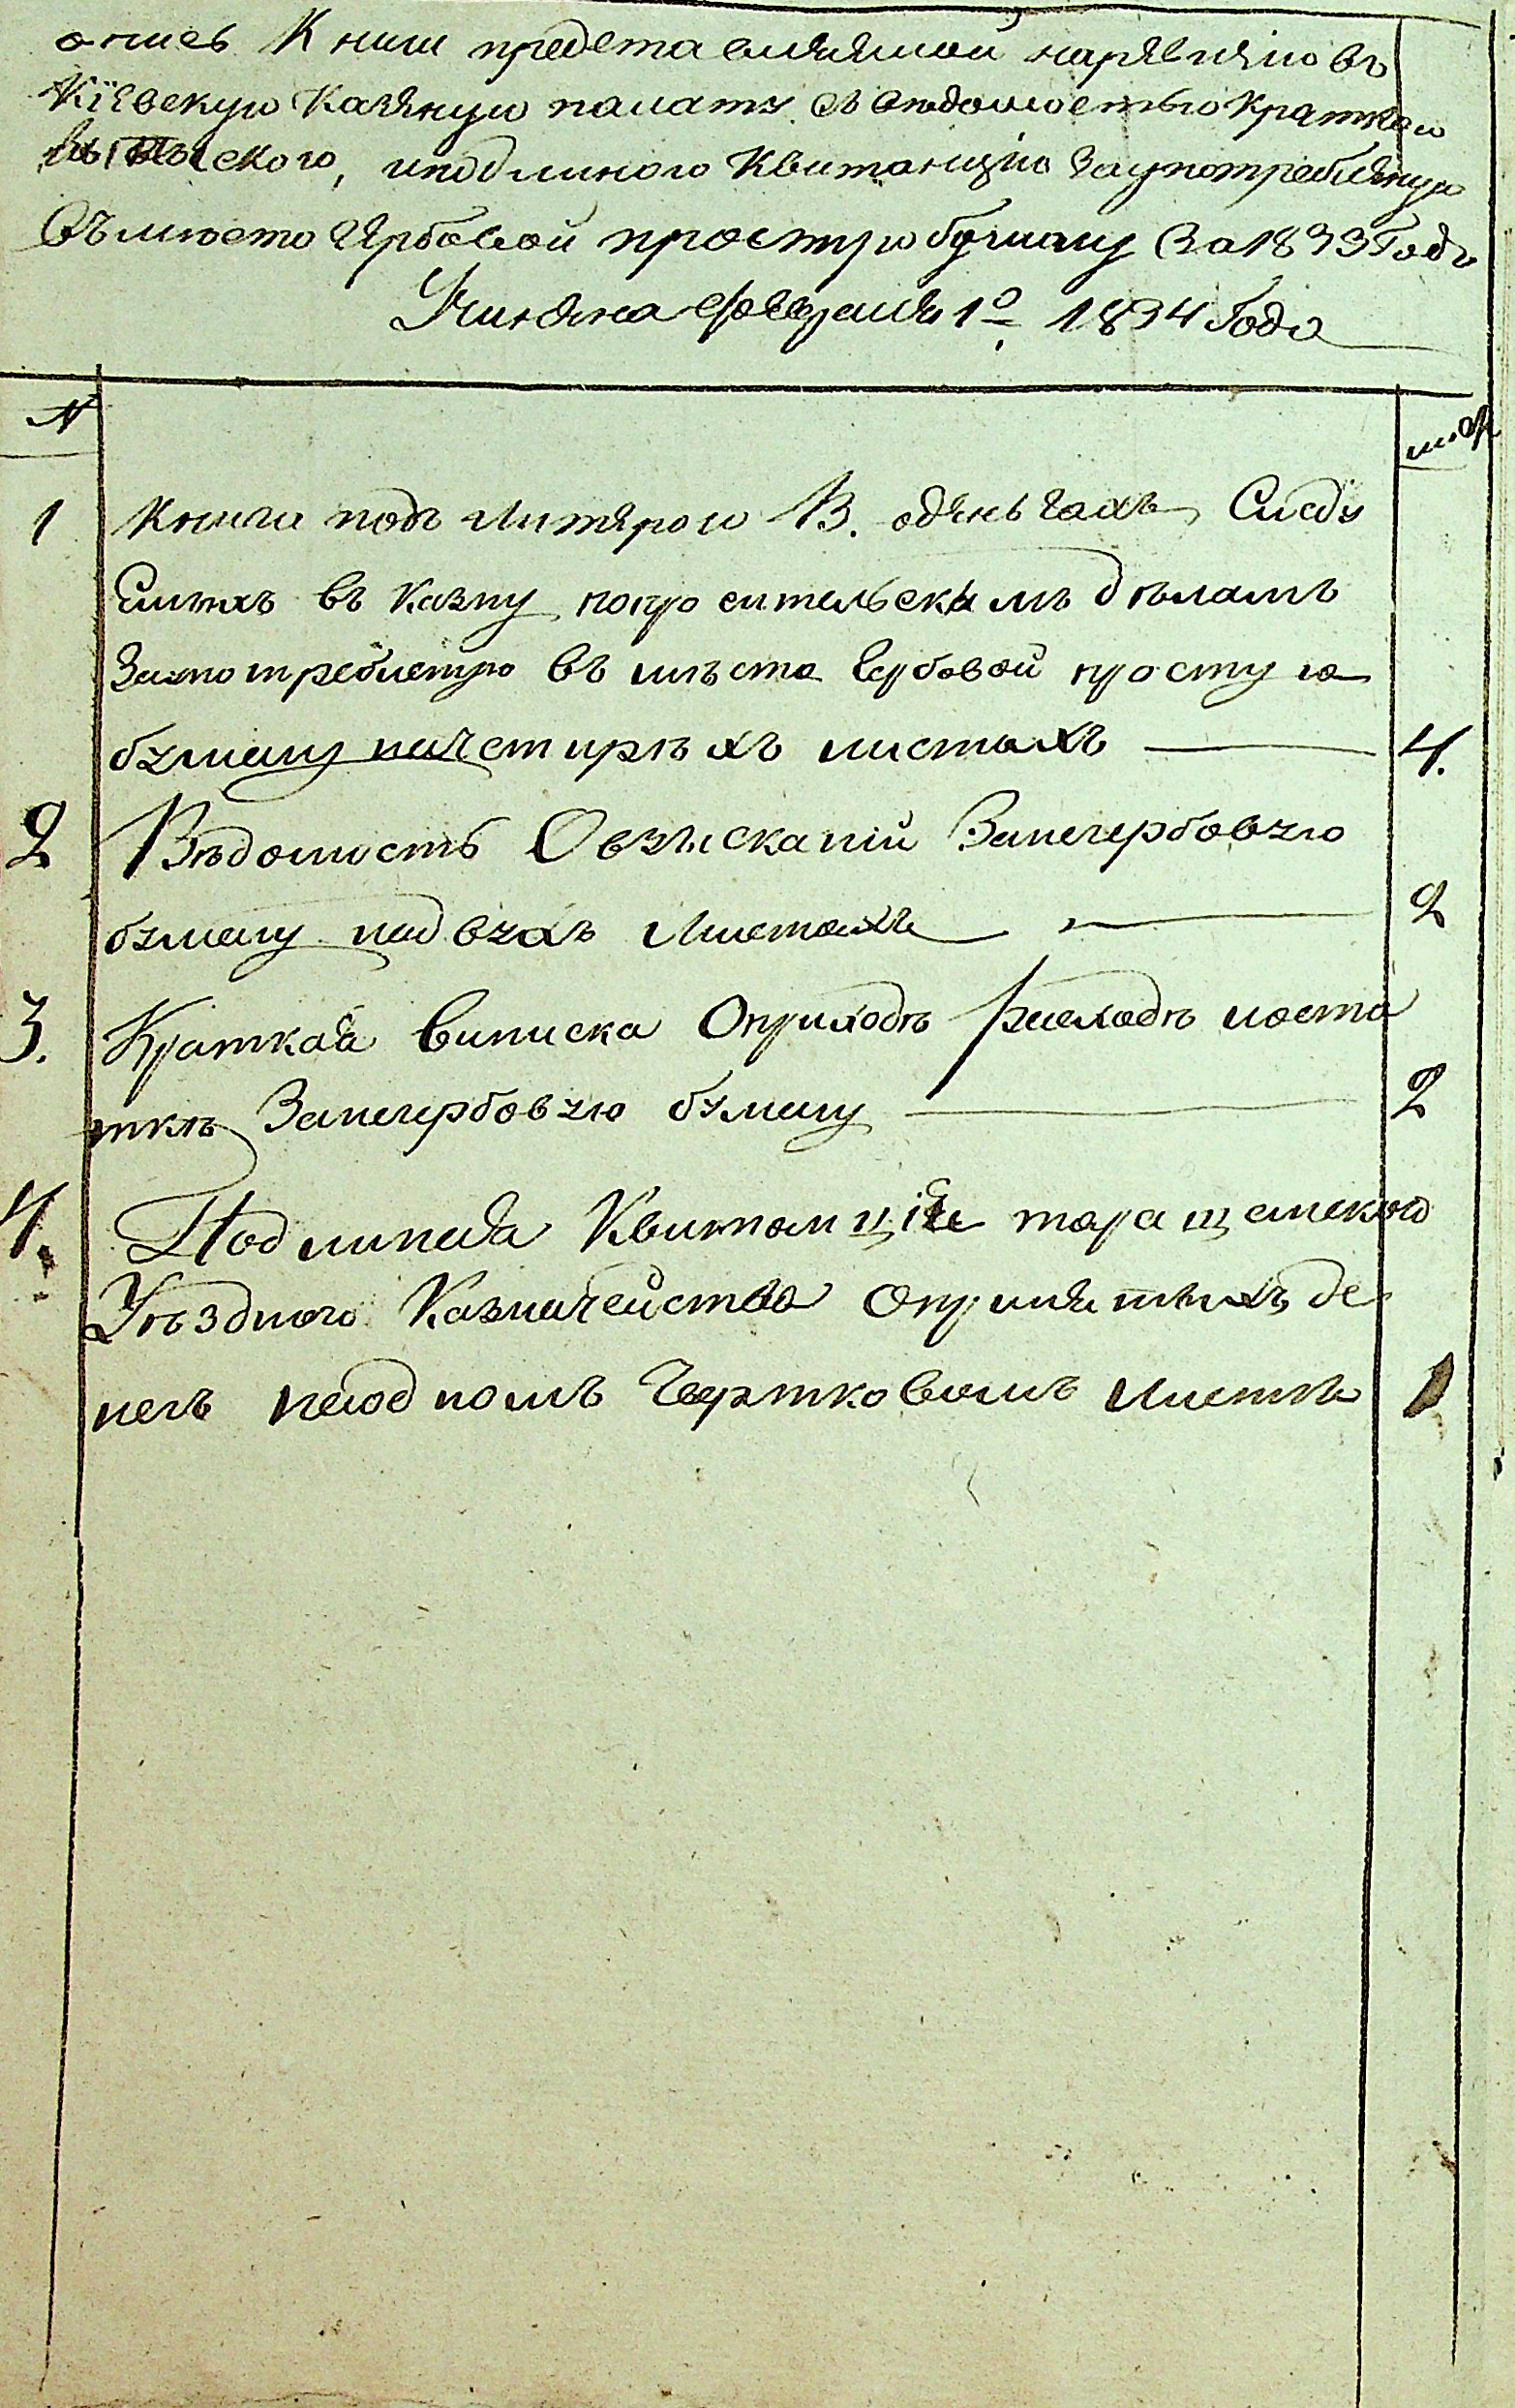 опись Книги представляемой наревизiю въ
Кiевскую Казенную палату съ вѣдомостью краткою
выпискою, иподлиною Квитанцiю Заупотребленную
въмѣсто Гербовой простую бумагу За 1833 Годъ
Учинена февраля 1º 1834 Года
№ лис
1 Книга подъ Литерою В. оденьгахъ, Следу
Емыхъ въ Казну попросительскимъ дѣламъ
Заупотреблетую въ мѣста Гербовой простую
бумагу начетирѣхъ листахъ 4.
2 Вѣдомость Овзысканiи Занегербовую
бумагу надвухъ Листахъ 2
3. Краткая Виписка Оприходѣ Расходѣ иоста
ткѣ Занегербовую бумагу 2
4. Подлиная Квитанцiя таращанского
Уѣздного Казначейства Оприиятыхъ де
негъ наодномъ Чертковомъ Листѣ 1